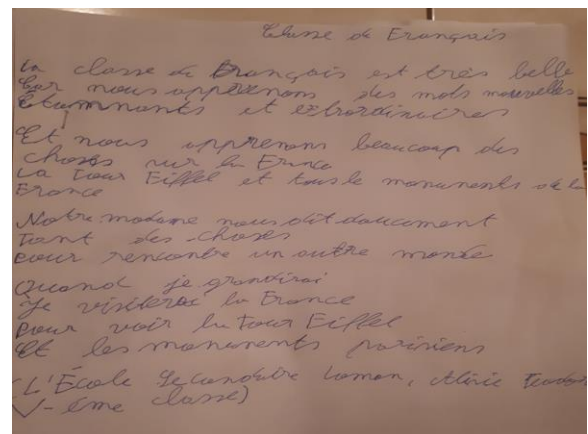 Classe de Français
La classe de Français est très belle
Car nous apprenons des mots nouvelles
Etummants et extrordinaires
Et nous apprenons beaucoup des
choses sur la France
La Tour Eiffel et tous le monuments de la
France
Notre madame nous dit doucment
Tant des choses
Pour rencontre un autre monde
Quand je grandirai
Je visiterai la France
Pour voir la Tour Eiffel
Et les monuments parisiens
(L'École Secondaire
V-ème classe)